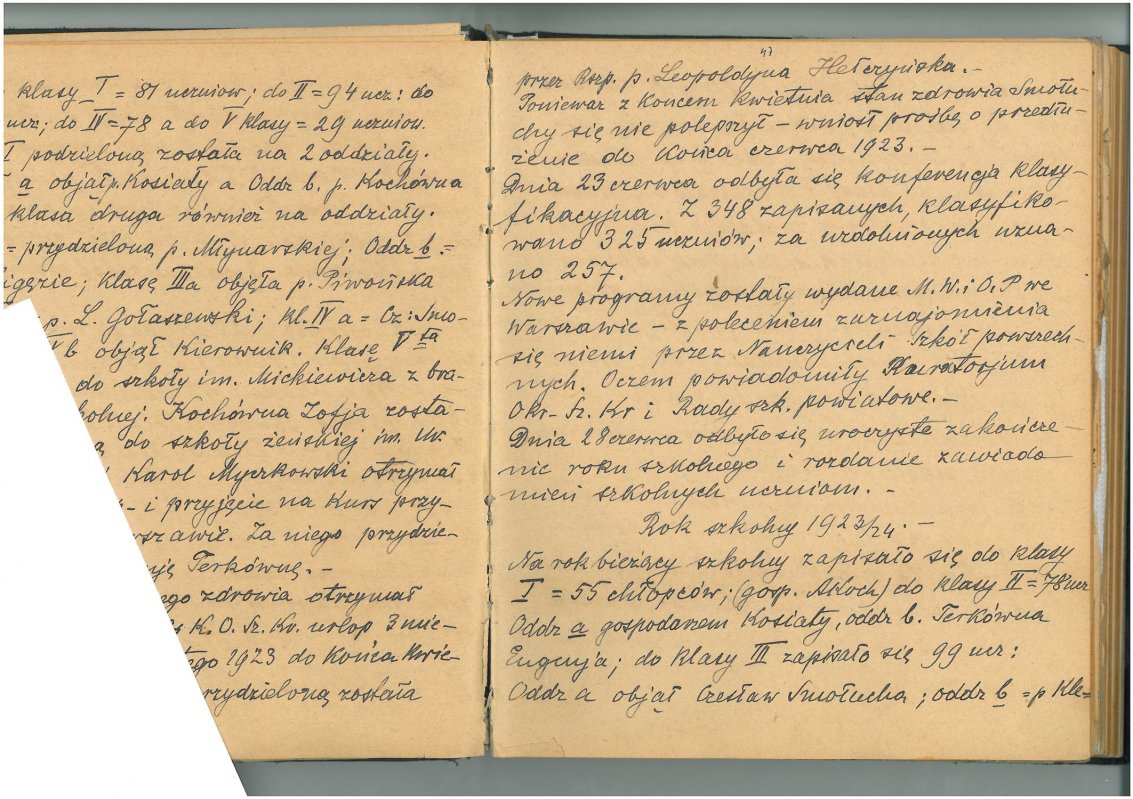 klasy I = 81 uczniow; do II = 94 ucz: do
ucz; do IV = 78 a do V klasy = 29 uczniow.
I podzieloną została na 2 oddziały.
a objął p. Kosiaty a Oddz b. p. Kochówna
klasa druga również na oddziały.
= przydzieloną p. Młynarskiej; Oddz b. =
klasę IIIa objęła p. Piwońska
p. L. Gołaszewski; kl. IV a = Cz: Smo-
b objął Kierownik. Klasę V tą
do szkoły im. Mickiewicza z bra-
Kochówna Zofja zosta-
do szkoły żeńskiej im. Św.
Karol Myczkowski otrzymał
i przyjęcie na Kurs przy-
Za niego przydzie-
Terkównę. -
zdrowia otrzymał
K. O. Sz. Kr. urlop 3 mie-
1923 do Końca Kwie-
przydzieloną została
47
przez Rszp. p. Leopoldyna Hełczyńska. -
Ponieważ z Koncem Kwietnia stan zdrowia Smołu-
chy się nie polepszył - wniosł prośbę o przedłu-
żenie do Końca czerwca 1923. -
Dnia 23 czerwca odbyła się konferencja klasy-
fikacyjna. Z 348 zapisanych, klasyfiko-
wano 325 uczniów; za uzdolnionych uzna-
no 257.
Nowe programy zostały wydane M.W.i O.P we
Warszawie - z poleceniem zaznajomienia
się niemi przez Nauczycieli Szkół powszech-
nych. Oczem powiadomiły Kuratorjum
Okr. Sz. Kr i Rady szk. powiatowe. -
Dnia 28 czerwca odbyło się uroczyste zakończe-
nie roku szkolnego i rozdanie zawiado-
mień szkolnych uczniom. -
Rok szkolny 1923/24. -
Na rok bieżący szkolny zapisało się do klasy
I = 55 chłopców; (gosp. A Koch) do klasy II = 78 ucz
Oddz a gospodarzem Kosiaty, oddz b. Terkówna
Eugenja; do Klasy III zapisało się 99 ucz:
Oddz a objął Czesław Smołucha; oddz b = p Kle=